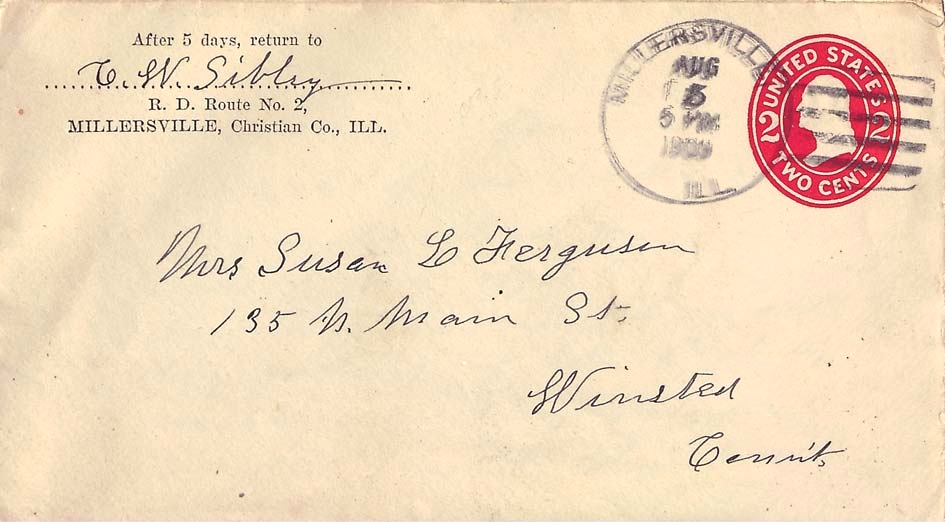 After 5 days, return to
C. W. Sibley
R. D. Route No. 2,
MILLERSVILLE, Christian Co., ILL.
MILLERSVILLE
AUG
5
5 PM
ILL.
UNITED STATES
2 2
TWO CENTS
Mrs Susan L Ferguson
135 N. Main St.
Winsted